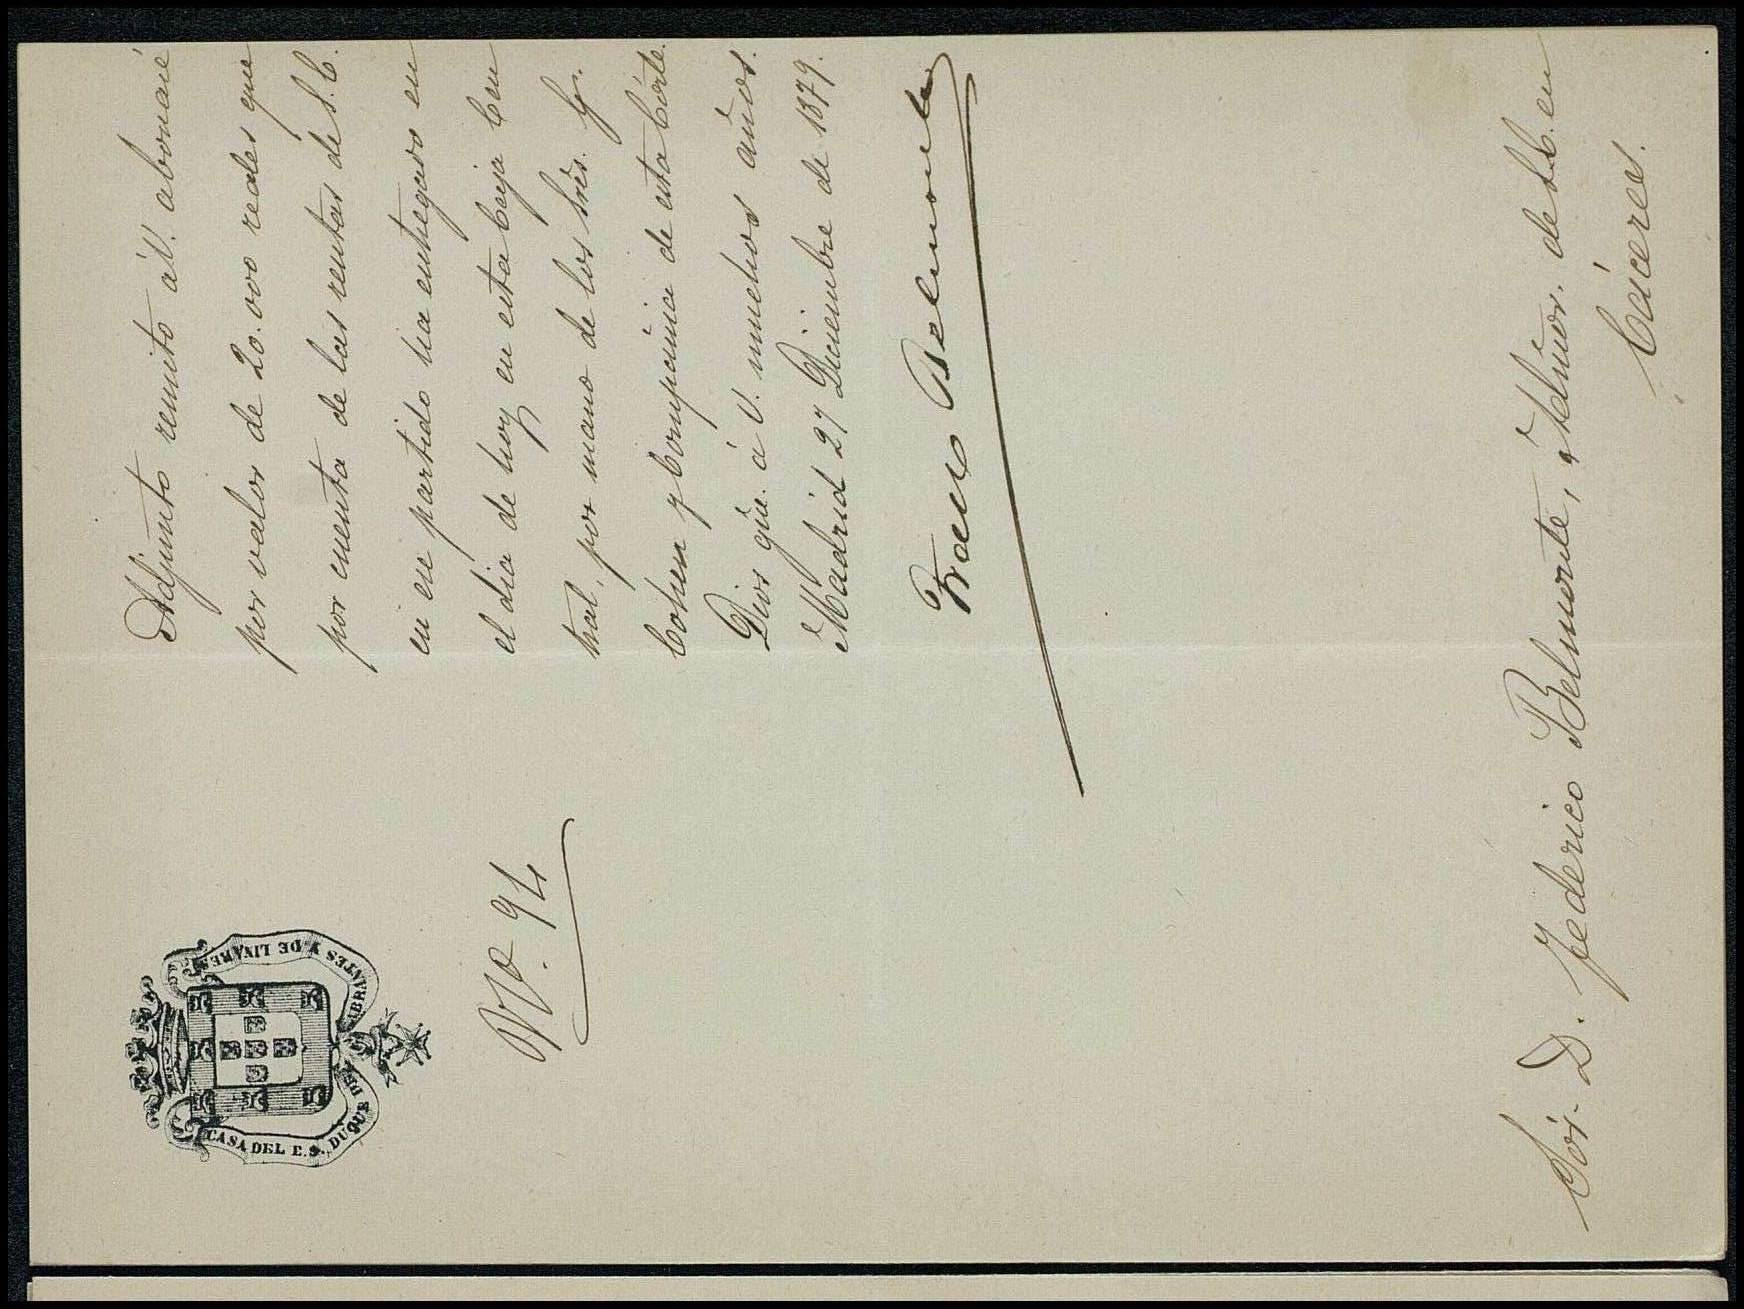 CASA DEL E. S. DUQUE DE ABRANTES Y DE LINARES
Nº. 94
Adjunto remito á V. abonaré
por valor de 20.000 reales que
por cuenta de las rentas de S. E.
en ese partido ha entregado en
el dia de hoy en esta Caja Cen
tral, por mano de los Sres. G.
Cohen y Compañia de esta Córte.
Dios gue. á V. muchos años.
Madrid 27 Diciembre de 1879.
Franco Belmonte
Sór. D. Federico Belmonte, Admor. de S.E. en
Cáceres.